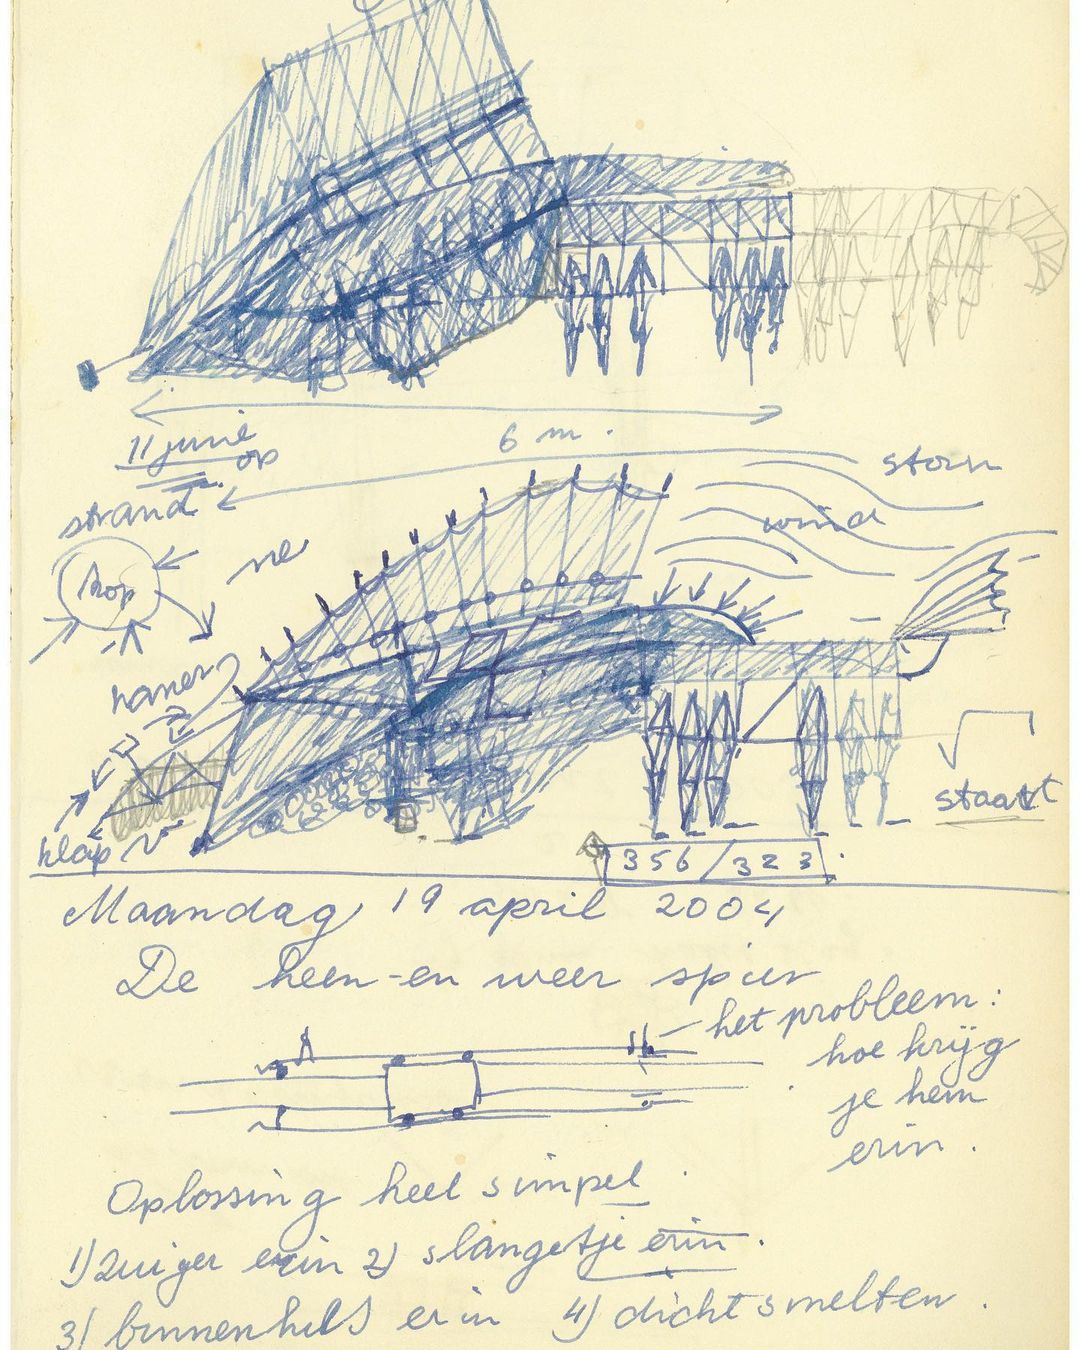 11 junie
op
strand
6 m.
storm
wind
kop
ne
hamer
klap
staart
356/323.
Maandag 19 april 2004
De heen-en weer spier
het probleem:
hoe krijg
je hem
erin.
Oplossing heel simpel.
1) Zuiger erin 2) slangetje erin.
3) binnenhuls erin 4) dicht smelten.